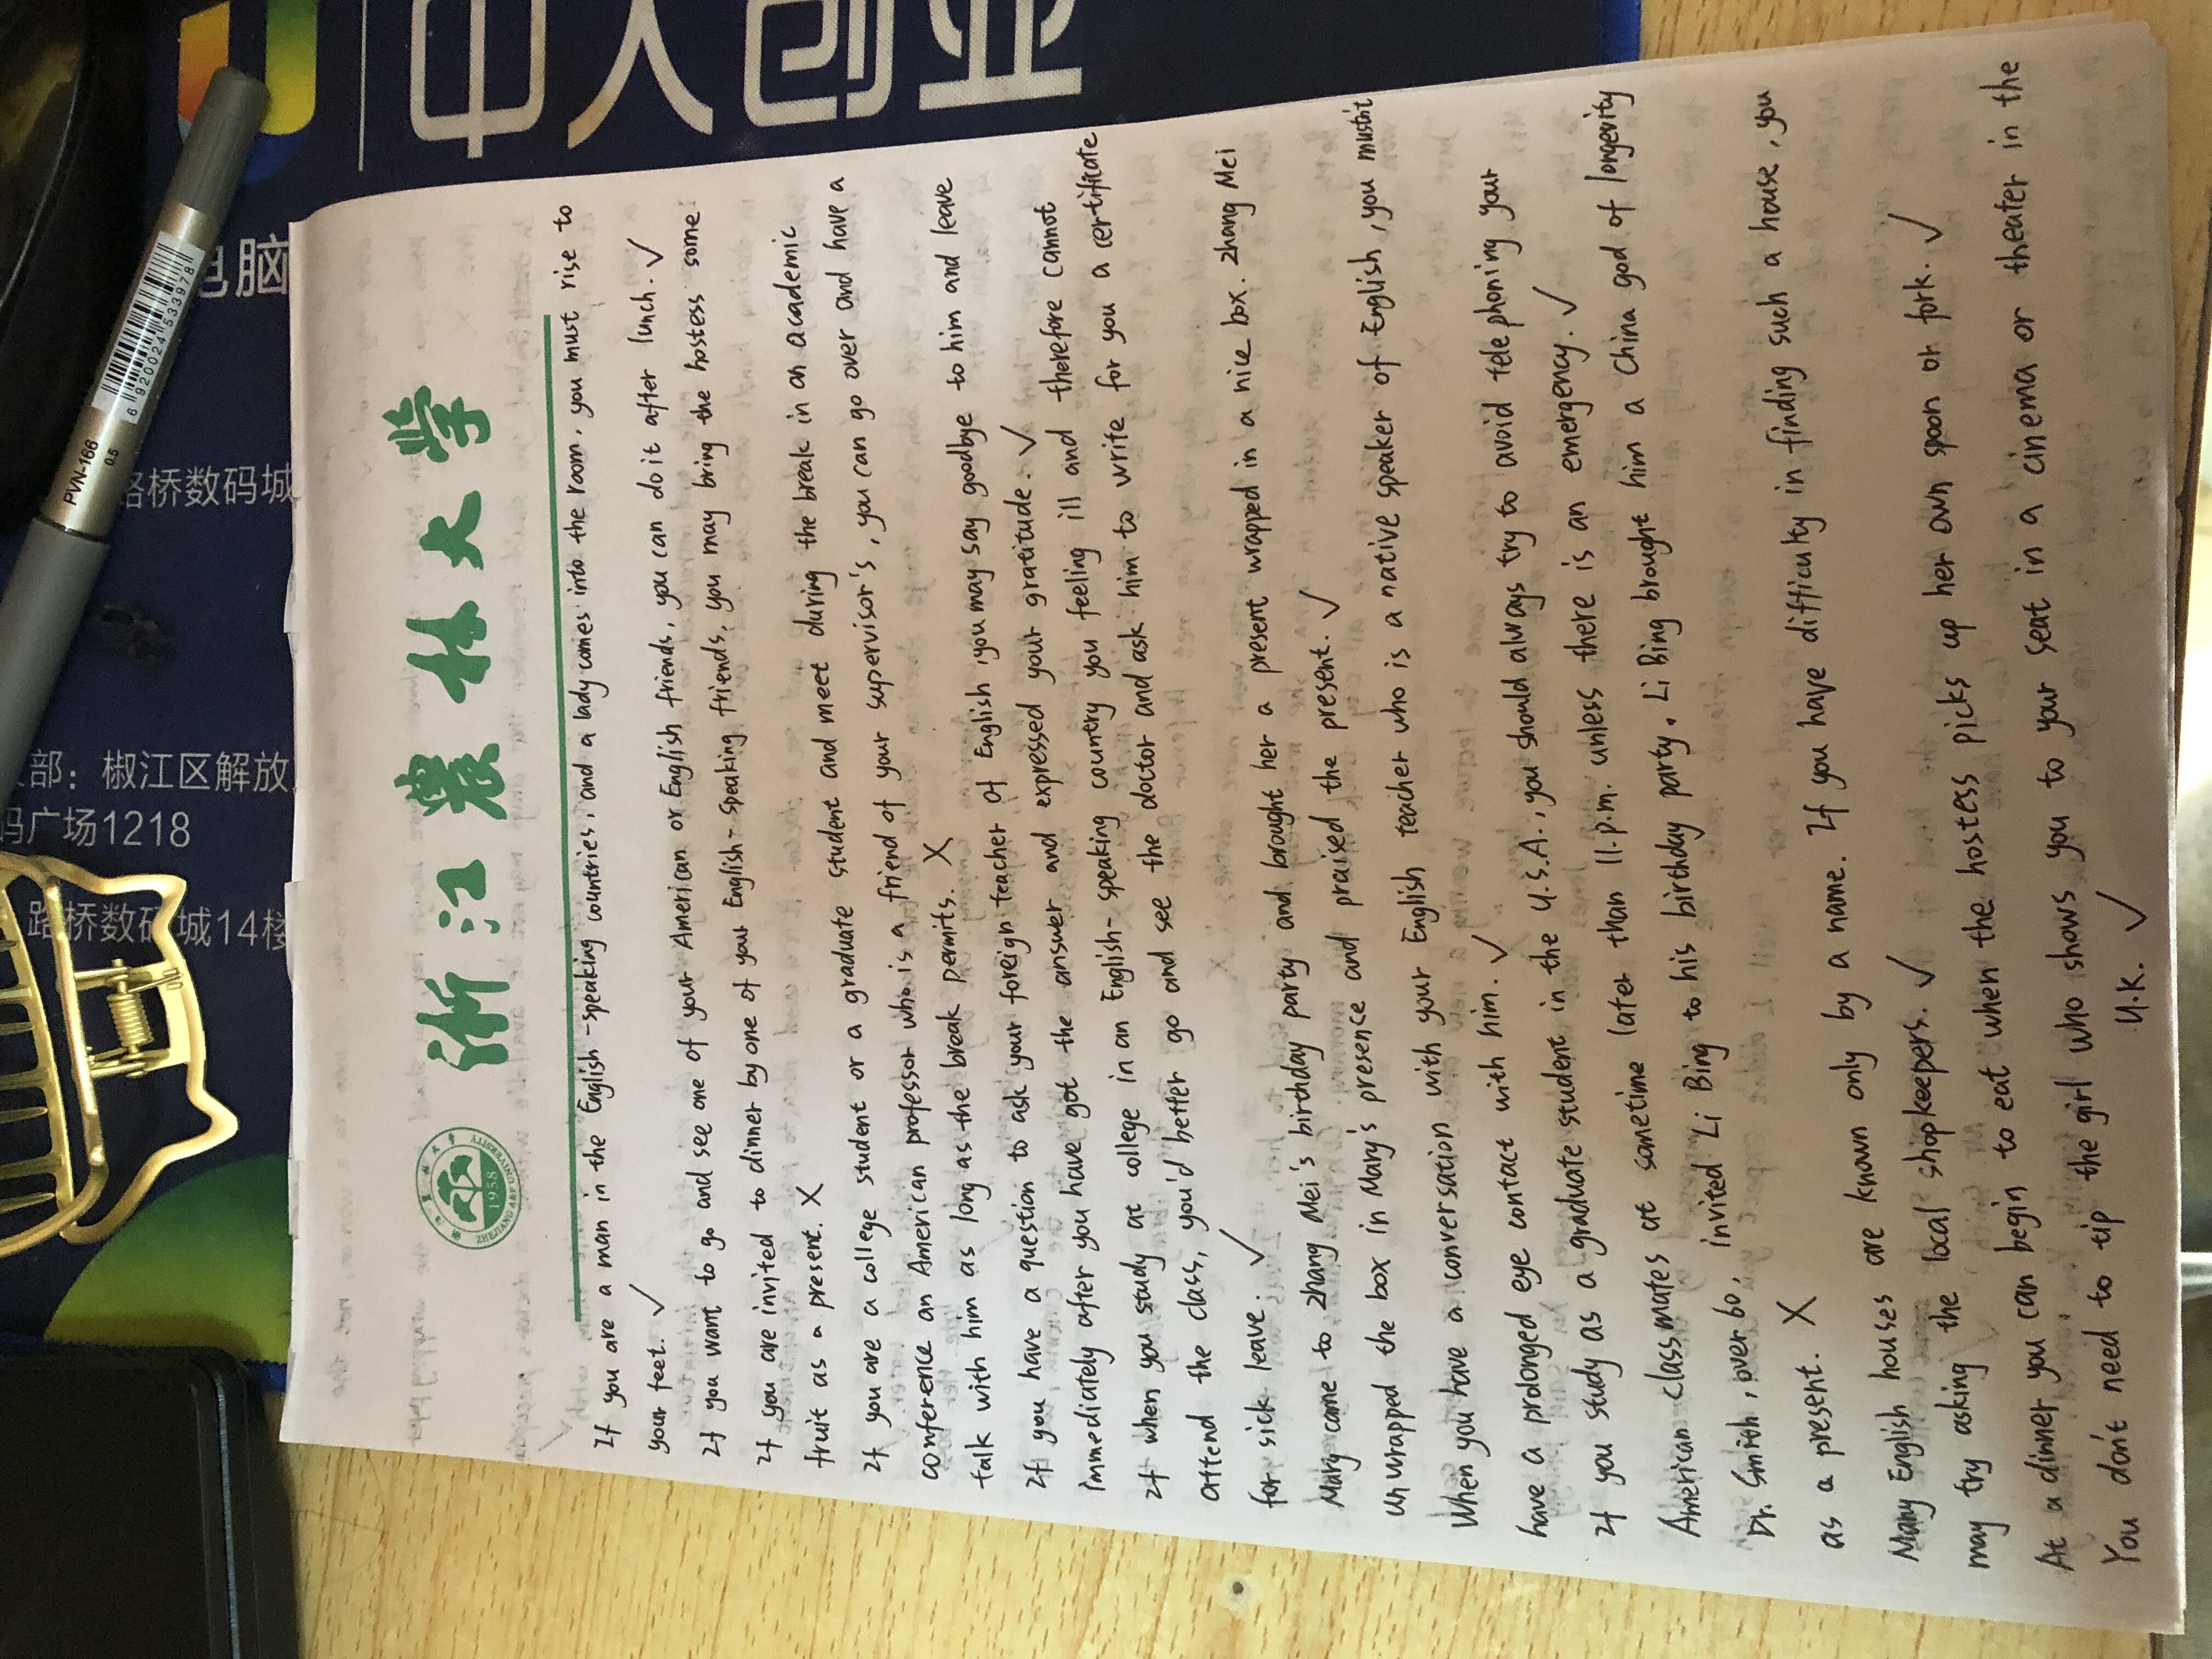 中人创业
电脑
路桥数码城
部：椒江区解放
码广场1218
路桥数码城14楼
PVN-166
0.5
6920024533978
浙江农林大学
1958
ZHEJIANG A&F UNIVERSITY
If you are a man in the English-speaking countries, and a lady comes into the room, you must rise to
your feet. ✓
If you want to go and see one of your American or English friends, you can do it after lunch. ✓
If you are invited to dinner by one of your English-speaking friends, you may bring the hostess some
fruit as a present. X
If you are a college student or a graduate student and meet during the break in an academic
conference an American professor who is a friend of your supervisor's, you can go over and have a
talk with him as long as the break permits. X
If you have a question to ask your foreign teacher of English, you may say goodbye to him and leave
immediately after you have got the answer and expressed your gratitude. ✓
If when you study at college in an English-speaking country you feeling ill and therefore cannot
attend the class, you'd better go and see the doctor and ask him to write for you a certificate
for sick leave. ✓
Mary came to Zhang Mei's birthday party and brought her a present wrapped in a nice box. Zhang Mei
unwrapped the box in Mary's presence and praised the present. ✓
When you have a conversation with your English teacher who is a native speaker of English, you mustn't
have a prolonged eye contact with him. ✓
If you study as a graduate student in the U.S.A., you should always try to avoid telephoning your
American classmates at sometime later than 11.p.m. unless there is an emergency. ✓
Dr. Smith, over 60, invited Li Bing to his birthday party. Li Bing brought him a China god of longevity
as a present. X
Many English houses are known only by a name. If you have difficulty in finding such a house, you
may try asking the local shopkeepers. ✓
At a dinner you can begin to eat when the hostess picks up her own spoon or fork. ✓
You don't need to tip the girl who shows you to your seat in a cinema or theater in the
U.K. ✓